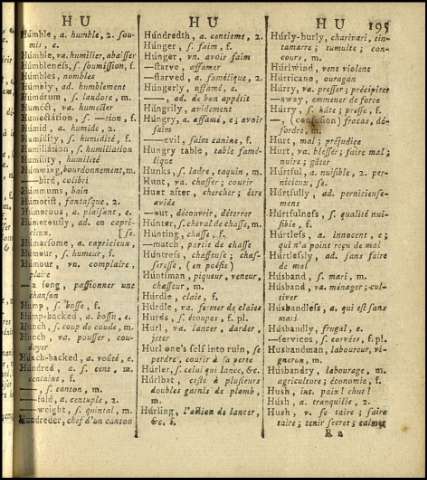 H U
Húmble, a. humble, 2. sou-
mis, e.
Húmble, va. humilier, abaisser
Húmbleness, s. soumission, f.
Húmbles, nombles
Húmbly, ad. humblement
Húmdrum, s. laudore, m.
Huméct, va. humecter
Humectátion, s. —tion, f.
Húmid, a. humide, 2.
Humídity, s. humidité, f.
Humiliátion, s. humiliation
Humílity, humilité
Húmming, bourdonnement, m.
—bird, colibri
Húmmums, bain
Húmorist, fantasque, 2.
Húmorous, a. plaisant, e.
Húmorously, ad. en capri-
cieux
Húmorsome, a. capricieux
Húmour, s. humeur, f.
Húmour, vn. complaire,
plaire
—a song, passionner une
chanson
Hump, s. bosse, f.
Hump-backed, a. bossu, e.
Hunch, s. coup de coude, m.
Hunch, va. pousser, cou-
doyer
Hunch-backed, a. voûté, e.
Húndred, a. s. cent,
centaine, f.
—, s. canton, m.
—fold, a. centuple, 2.
—weight, s. quintal, m.
Hundreder, chef d'un canton
H U
Húndredth, a. centieme, 2.
Húnger, s. faim, f.
Húnger, vn. avoir faim
—starve, affamer
—starved, a. famélique, 2.
Húngerly, affamé, e.
—, ad. de bon appétit
Húngrily, avidement
Húngry, a. affamé, e; avoir
faim
—evil, faim canine, f.
Hungry table, table famé-
lique
Hunks, s. ladre, taquin, m.
Hunt, va. chasser; courir
Hunt after, chercher; être
avide
—out, découvrir, déterrer
Húnter, s. cheval de chasse, m.
Húnting, chasse, f.
—match, partie de chasse
Húntress, chasseuse; chas-
seresse, (en poésie)
Húntiman, piqueur, veneur,
chasseur, m.
Húrdle, claie, f.
Húrdle, va. fermer de claies
Hurds, s. étoupes, f. pl.
Hurl, va. lancer, darder,
jeter
Hurl one's self into ruin, se
perdre, courir à sa perte
Húrler, s. celui qui lance, &c.
Húrlbat, ceste à plusieurs
doubles garnis de plomb,
m.
Húrling, l'action de lancer,
&c. f.
H U
195
Húrly-burly, charivari, tin-
tamarre; tumulte; con-
cours, m.
Húrlwind, vent violent
Húrricane, ouragan
Húrry, va. presser; précipiter
—away, emmener de force
Húrry, s. hâte; presse, f.
—, (confusion) fracas, dé-
sordre, m.
Hurt, mal; préjudice
Hurt, va. blesser; faire mal;
nuire; gâter
Húrtful, a. nuisible, 2. per-
nicieux, se.
Húrtfully, ad. pernicieuse-
ment
Húrtfulness, s. qualité nui-
sible, f.
Húrtless, a. innocent, e;
qui n'a point reçu de mal
Húrtlessly, ad. sans faire
de mal
Húsband, s. mari, m.
Húsband, va. ménager; cul-
tiver
Húsbandless, a. qui est sans
mari
Húsbandly, frugal, e.
—services, s. corvées, f. pl.
Húsbandman, laboureur, vi-
gneron, m.
Húsbandry, labourage, m.
agriculture; économie, f.
Hush, int. paix! chut!
Hush, a. tranquille, 2.
Hush, v. se taire; faire
taire; tenir secret; calmer
R 2